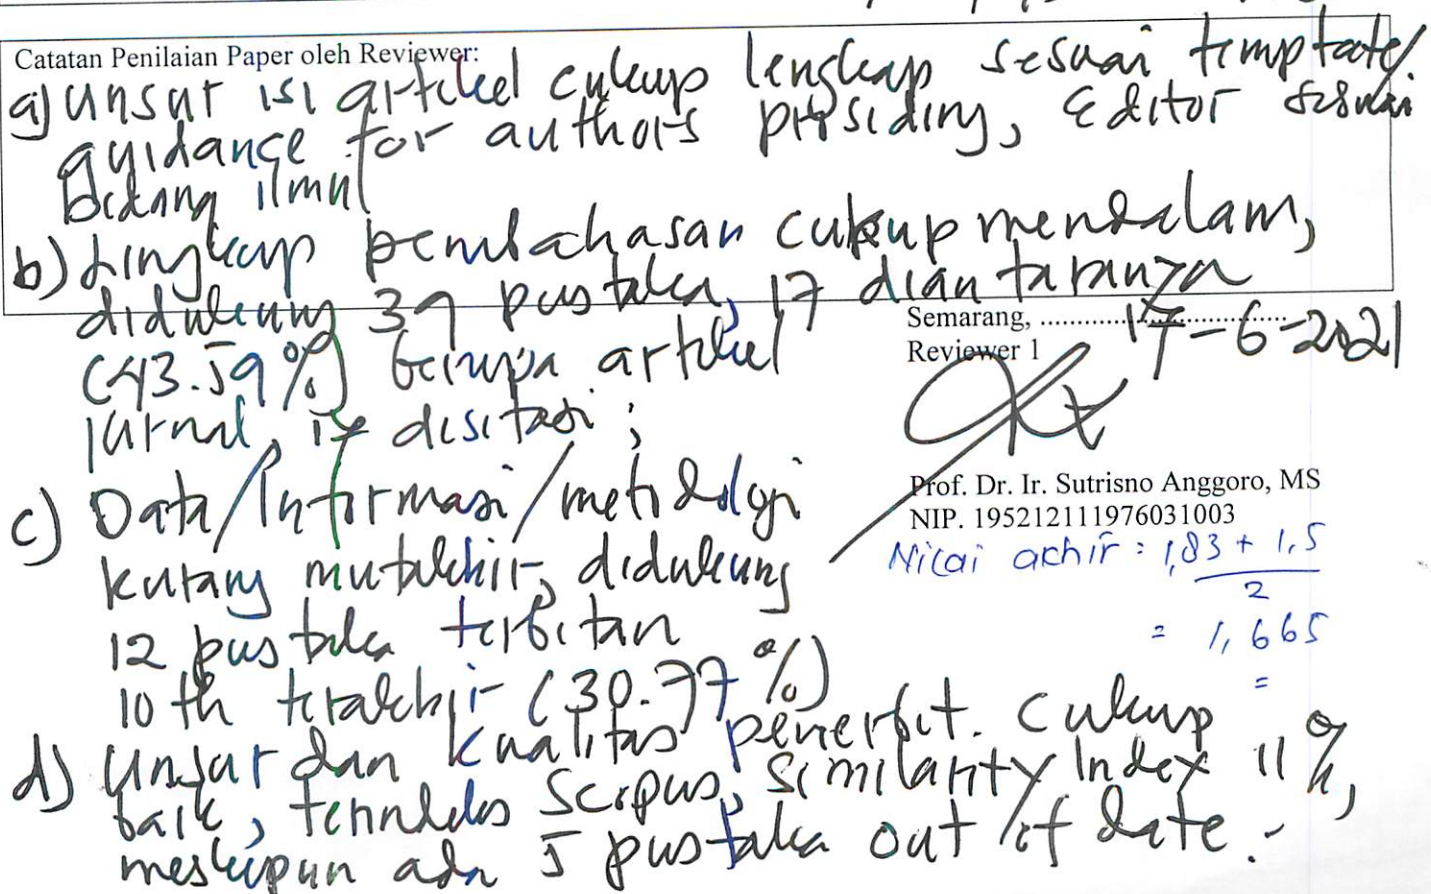 Catatan Penilaian Paper oleh Reviewer:
a) Unsur isi artikel cukup lengkap sesuai template/
guidance for authors prosiding, Editor sesuai
bidang ilmu
b) Lingkup pembahasan cukup mendalam,
didukung 39 pustaka, 17 diantaranya
(43.59%) berupa artikel
jurnal, yg disitasi;
c) Data/Informasi/metodologi
kurang mutakhir, didukung
12 pustaka terbitan
10 th terakhir (30.77%)
d) Unsur dan kualitas penerbit cukup
baik, terindeks Scopus, Similarity Index 11%,
meskipun ada 5 pustaka out of date.-
Semarang, 17-6-2021
Reviewer 1
Prof. Dr. Ir. Sutrisno Anggoro, MS
NIP. 195212111976031003
Nilai akhir = 1,83 + 1,5
2
= 1,665
=